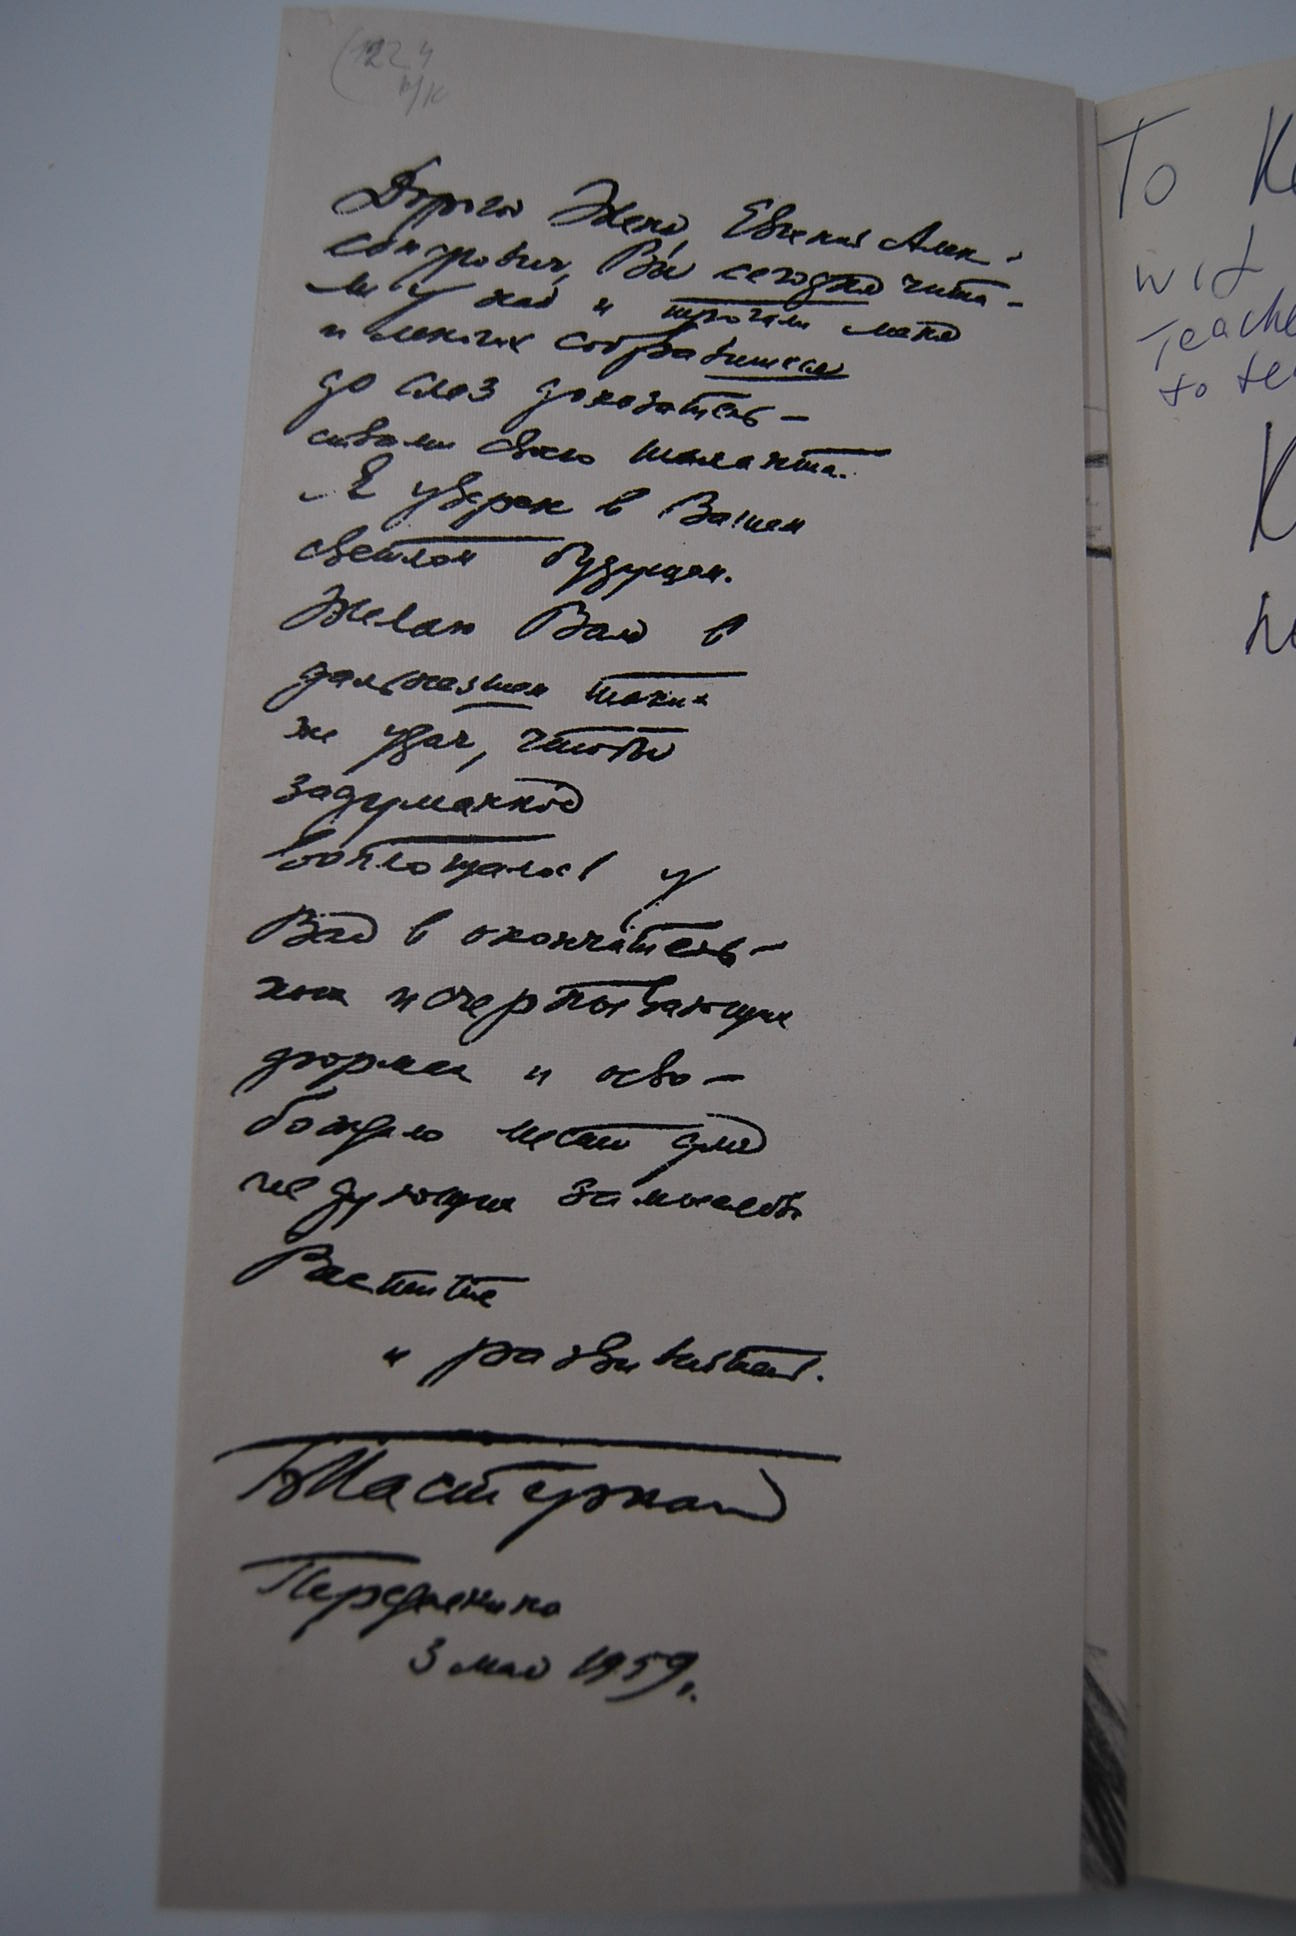 (1224
н/к
Дорогой Женя, Евгений Алек-
сандрович, Вы сегодня чита-
ли у нас и трогали меня
и многих собравшихся
до слез доказатель-
ствами своего таланта.
Я уверен в Вашем
светлом будущем.
Желаю Вам в
дальнейшем таких
же удач, чтобы
задуманное
воплощалось у
Вас в окончатель-
ных исчерпывающих
формах и осво-
бождало место для
последующих замыслов.
Растите
и развивайтесь.
Б Пастернак
Переделкино
3 мая 1959г.
To Ke
wit
Teache
to te
K